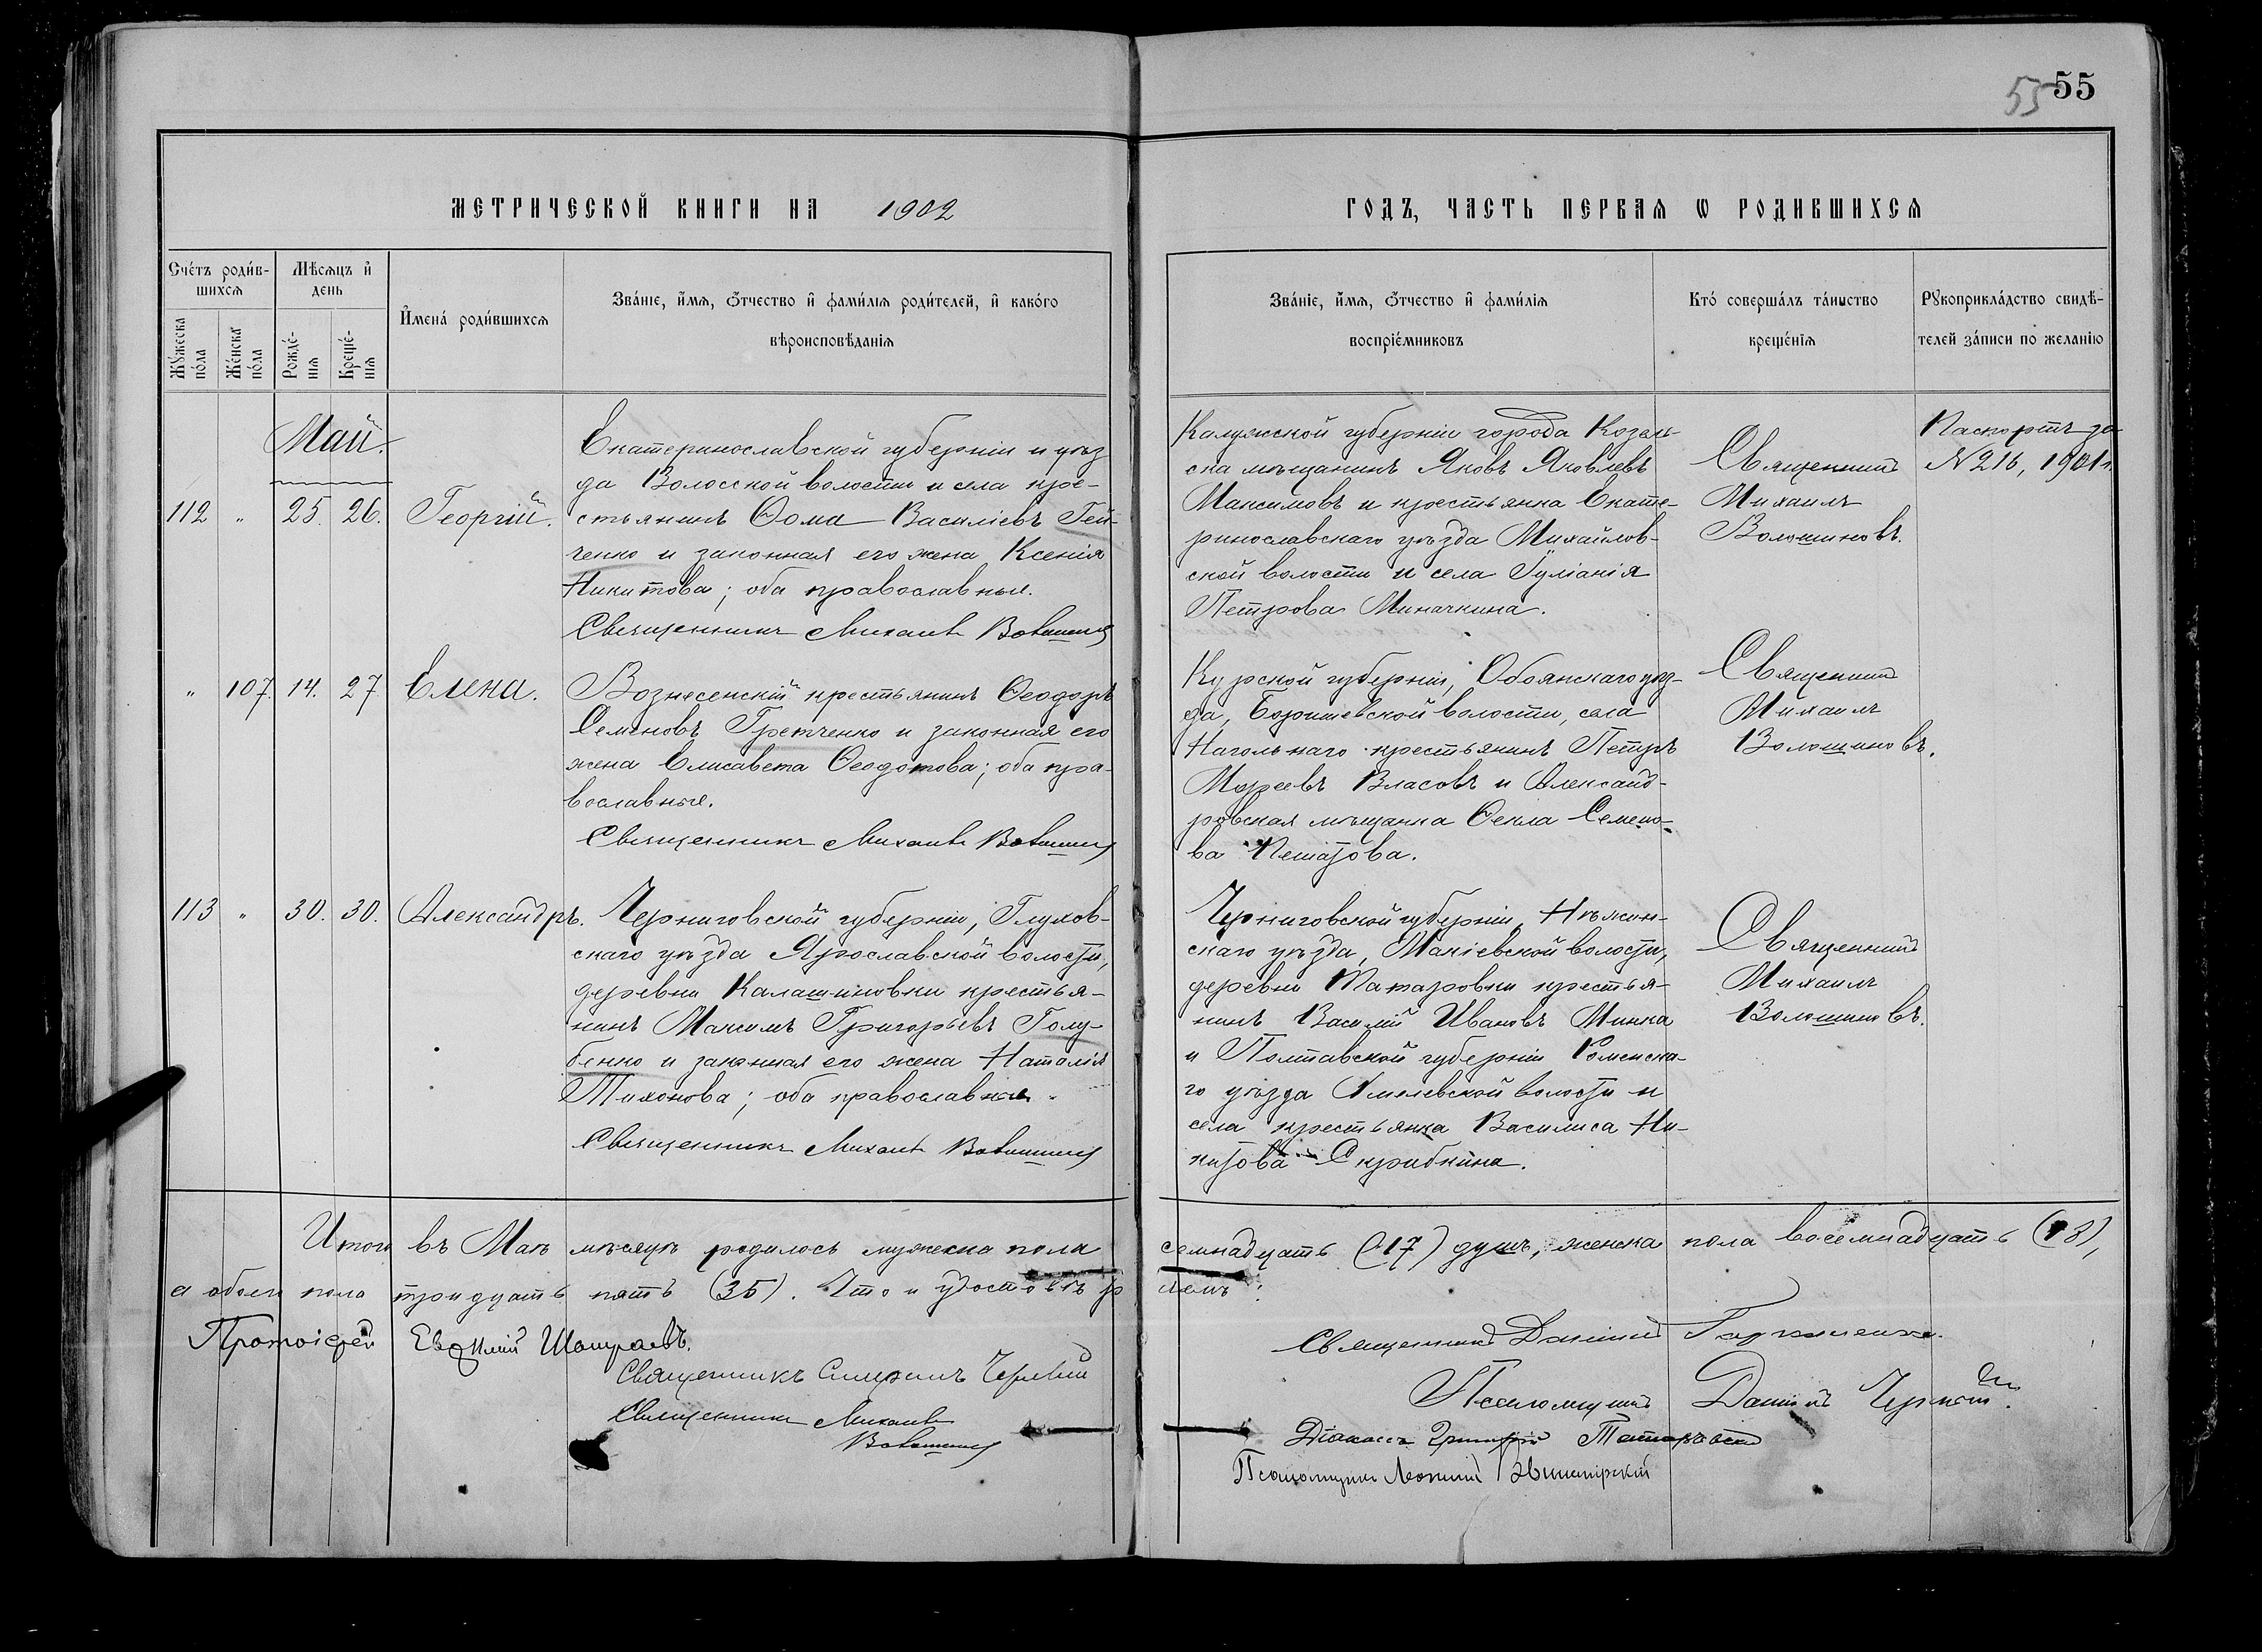 55 55
МЕТРИЧЕСКОЙ КНИГИ НА 1902
ГОДЪ, ЧАСТЬ ПЕРВАЯ Ѡ РОДИВШИХСЯ
Счетъ родив-
шихся
Мужеска
пола
Женска
пола
Мѣсяцъ и
день
Рожде-
нія
Креще-
нія
Имена родившихся
Званіе, имя, отчество и фамилія родителей, и какого
вѣроисповѣданія
Званіе, имя, отчество и фамилія
воспріемниковъ
Кто совершалъ таинство
крещенія
Рукоприкладство свидѣ-
телей записи по желанію
Май.
112 " 25. 26. Георгій.
Екатеринославской губерніи и уѣз
да Волосской волости и села кре-
стьянинъ Ѳома Василіевъ Гей-
ченко и законная его жена Ксенія
Никитова; оба православные.
Священникъ Михаилъ Волошинов
Калужской губерніи города Козель-
ска мѣщанинъ Яковъ Яковлевъ
Максимовъ и крестьянка Екате-
ринославскаго уѣзда Михайлов-
ской волости и села Іуліанія
Петрова Миначкина.
Священник
Михаилъ
Волошиновъ.
Паспортъ за
№ 216, 1901 г.
" 107. 14. 27 Елена.
Вознесенскій крестьянинъ Ѳеодоръ
Семеновъ Гретченко и законная его
жена Елисавета Ѳеодотова; оба пра-
вославные.
Священникъ Михаилъ Волошинов
Курской губерніи, Обоянскаго уѣз-
да, Боришевской волости, села
Нагольнаго крестьянинъ Петръ
Власовъ и Александ-
ровская мѣщанка Ѳекла Семено-
ва
Священник
Михаилъ
Волошиновъ.
113 " 30. 30. Александръ.
Черниговской губерніи, Глухов-
скаго уѣзда Ярославской волости,
деревни Калашиновки крестья-
нинъ Максимъ Григорьевъ Голу-
бенко и законная его жена Наталія
Тихонова; оба православные.
Священникъ Михаилъ Волошинов
Черниговской губерніи, Нѣжин-
скаго уѣзда, Макіевской волости,
деревни Татаровки крестья-
нинъ Василій Ивановъ Минка
и Полтавской губерніи Роменска-
го уѣзда Хмелевской волости и
села крестьянка Василиса Ни-
китова Скрибкина.
Священник
Михаилъ
Волошиновъ.
Итого въ Маѣ мѣсяцѣ родилось мужеска пола семнадцать (17) душъ, женска пола восемнадцать (18),
а обоего пола тридцать пять (35). Что и удостовѣряемъ:
Протоіерей Евѳимій
Священникъ Симеонъ
Священникъ Михаилъ
Волошинов
Священник Даніил
Псаломщик Даніилъ
Діаконъ Григорій
Псаломщикъ